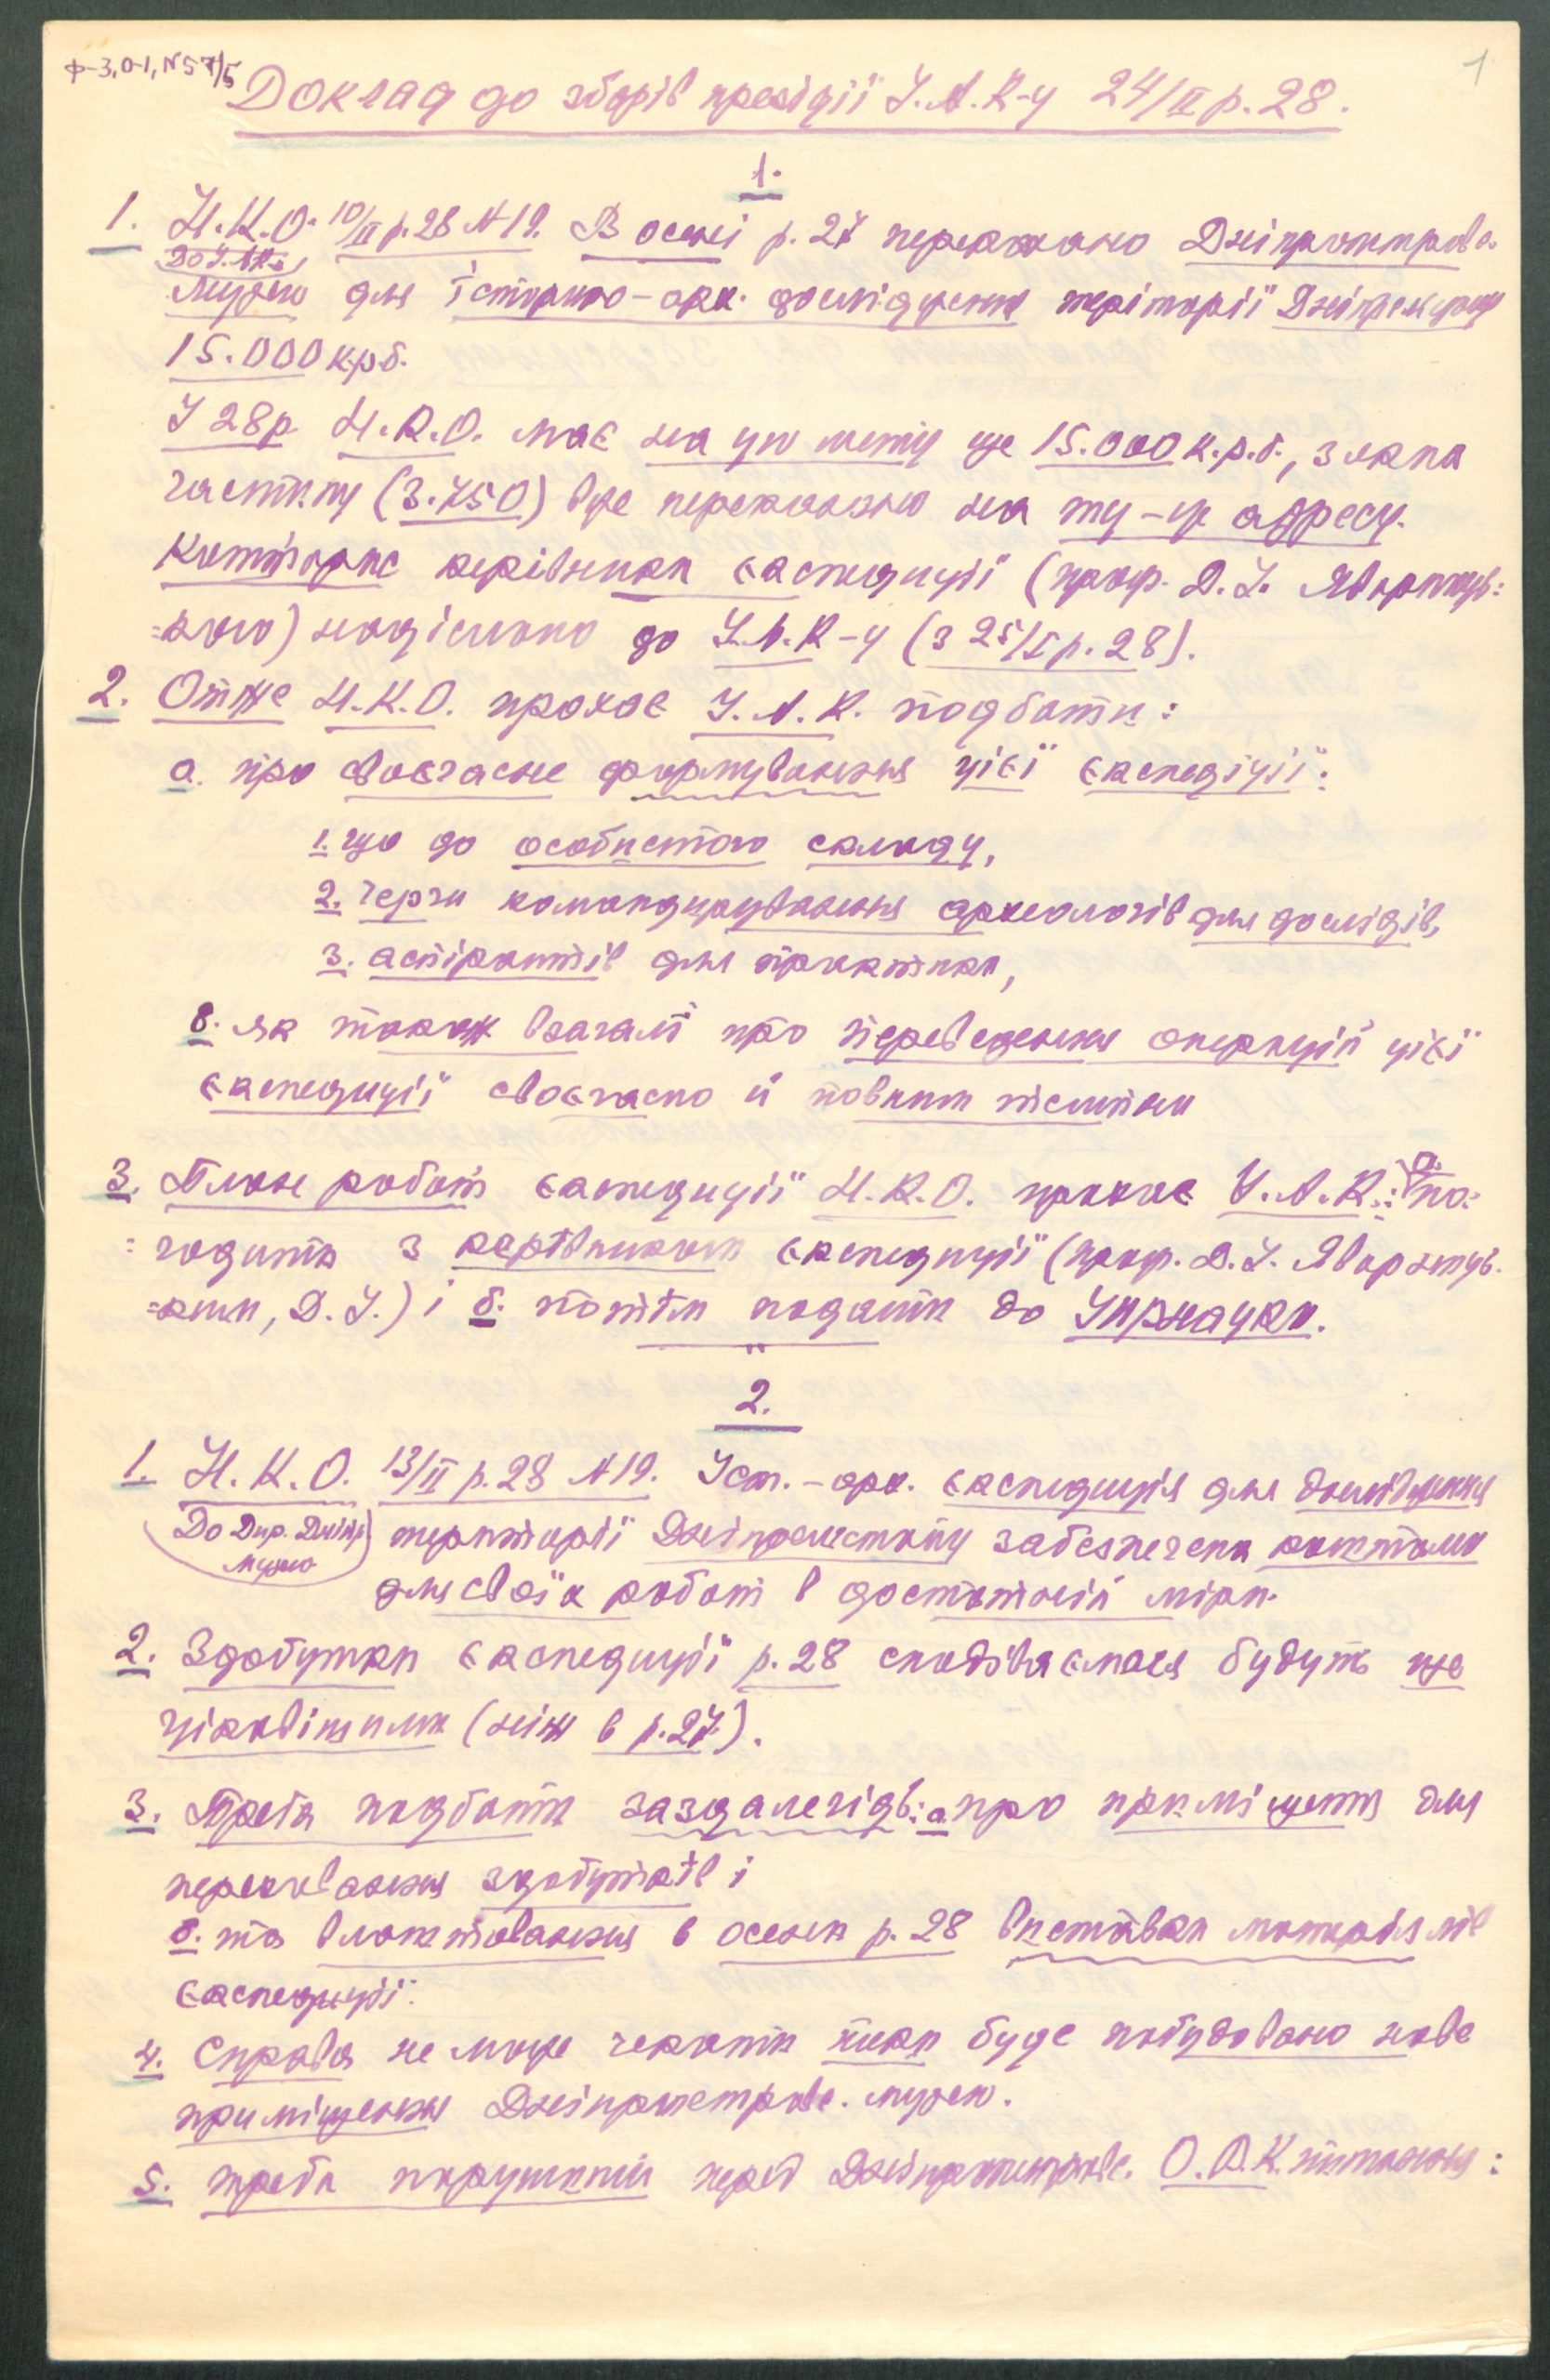 Ф-3, О-1, N57/5
1
Доклад до зборів президії У.А.К-у 24/II р. 28.
1.
1. Н.К.О. 10/II р. 28 N 19. В осені р. 27 переказано Дніпропетровс.
До У.А.К.
Музею для історично-арх. дослідження теріторії Дніпрельстану
15.000 крб.
У 28 р. Н.К.О. має на цю мету ще 15.000 к.р.б., з яких
частину (3.750) вже переказано на ту-ж адресу.
Кошторис керівника експедиції (проф. Д.І. Яворниць=
=кого) надіслано до У.А.К-у (з 25/I р. 28).
2. Отже Н.К.О. прохає У.А.К. подбати:
а. про своєчасне формування цієї експедіції:
1. що до особистого складу,
2. черги командирування археологів для дослідів,
3. аспірантів для практики,
в. як також взагалі про переведення операцій цієї
експедиції своєчасно й повним
3. План робот експедиції Н.К.О. прохає У.А.К.: а. по=
=годити з керівником експедиції (проф. Д.І. Яворниць=
=ким, Д.І.) і б. потім подати до Укрнауки.
2.
1. Н.К.О. 13/II р. 28 N 19. Іст.-арх. експедиція для дослідження
До Дир. Дніпр.
музею
територіі Дніпрельстану забезпечена коштами
для своїх робот в достатній мірі.
2. Здобутки експедиції р. 28 сподіваємося будуть ще
цікавішими (ніж в р. 27.).
3. Треба подбати заздалегідь: а. про приміщення для
переховання здобутків і
б. та влаштовання в осени р. 28 виставки матеріялів
експедиції.
4. Справа не може чекати поки буде побудовано нове
приміщення Дніпропетровс. музею.
5. треба порушити перед Дніпропетровс. О.В.К. питання: